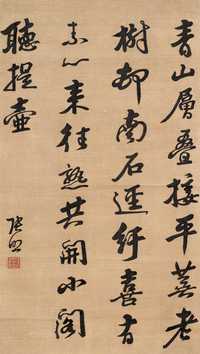 青山層疊接平蕪老
樹邨南石逕紆喜有
素心來往熟共開小閣
聽提壺
張照